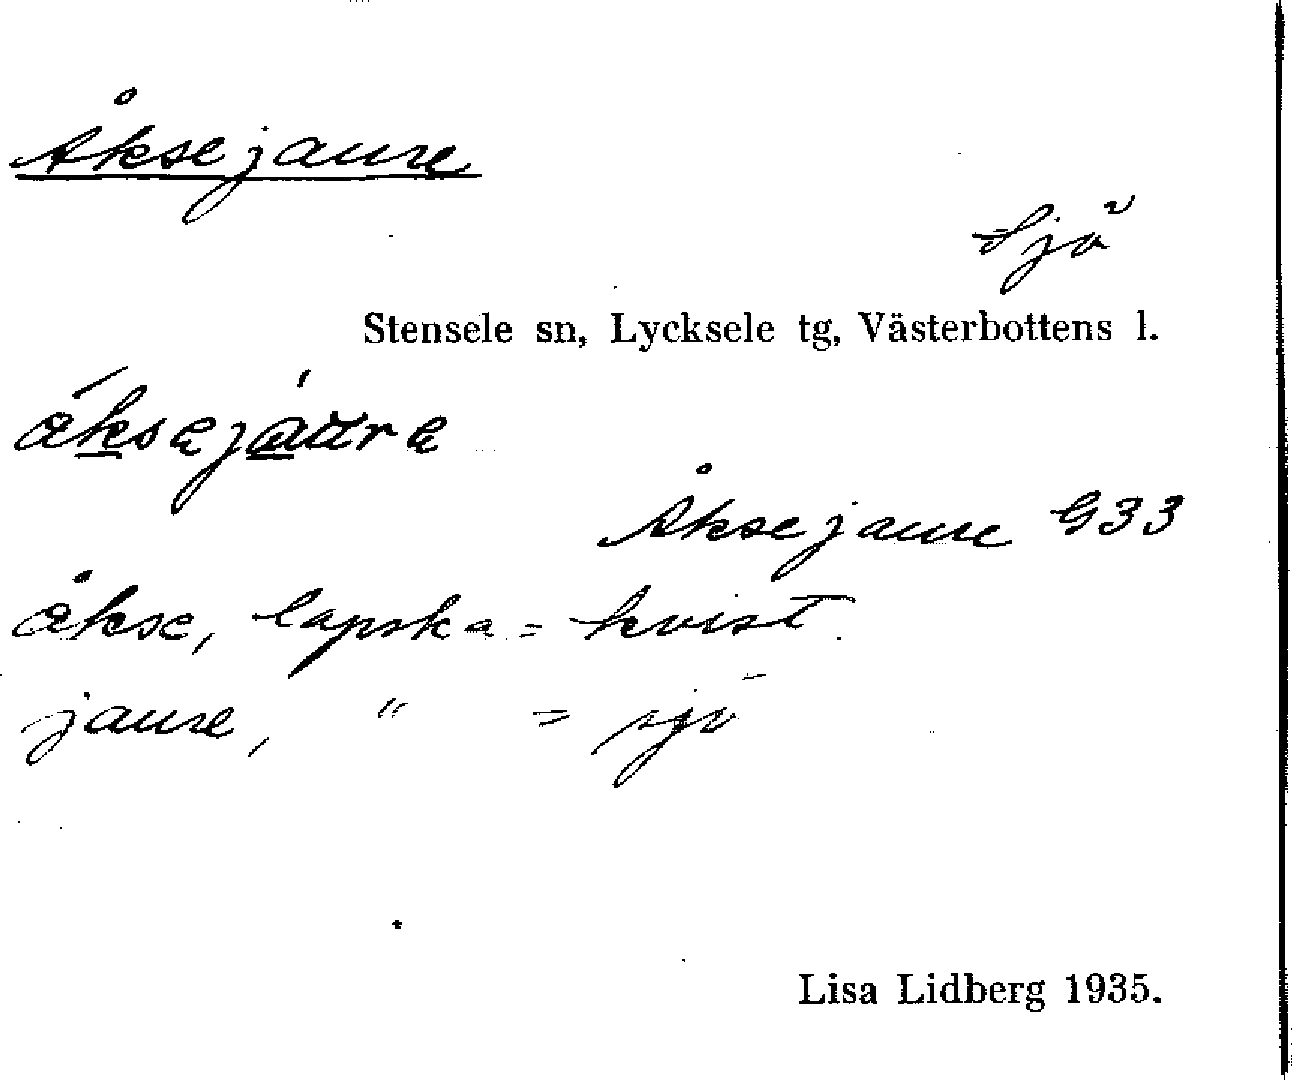 Åksejaure
Sjö
Stensele sn, Lycksele tg, Västerbottens l.
áksejáure
Åksejaure G33
åkse, lapska = kvist.
jaure, " = sjö
Lisa Lidberg 1935.